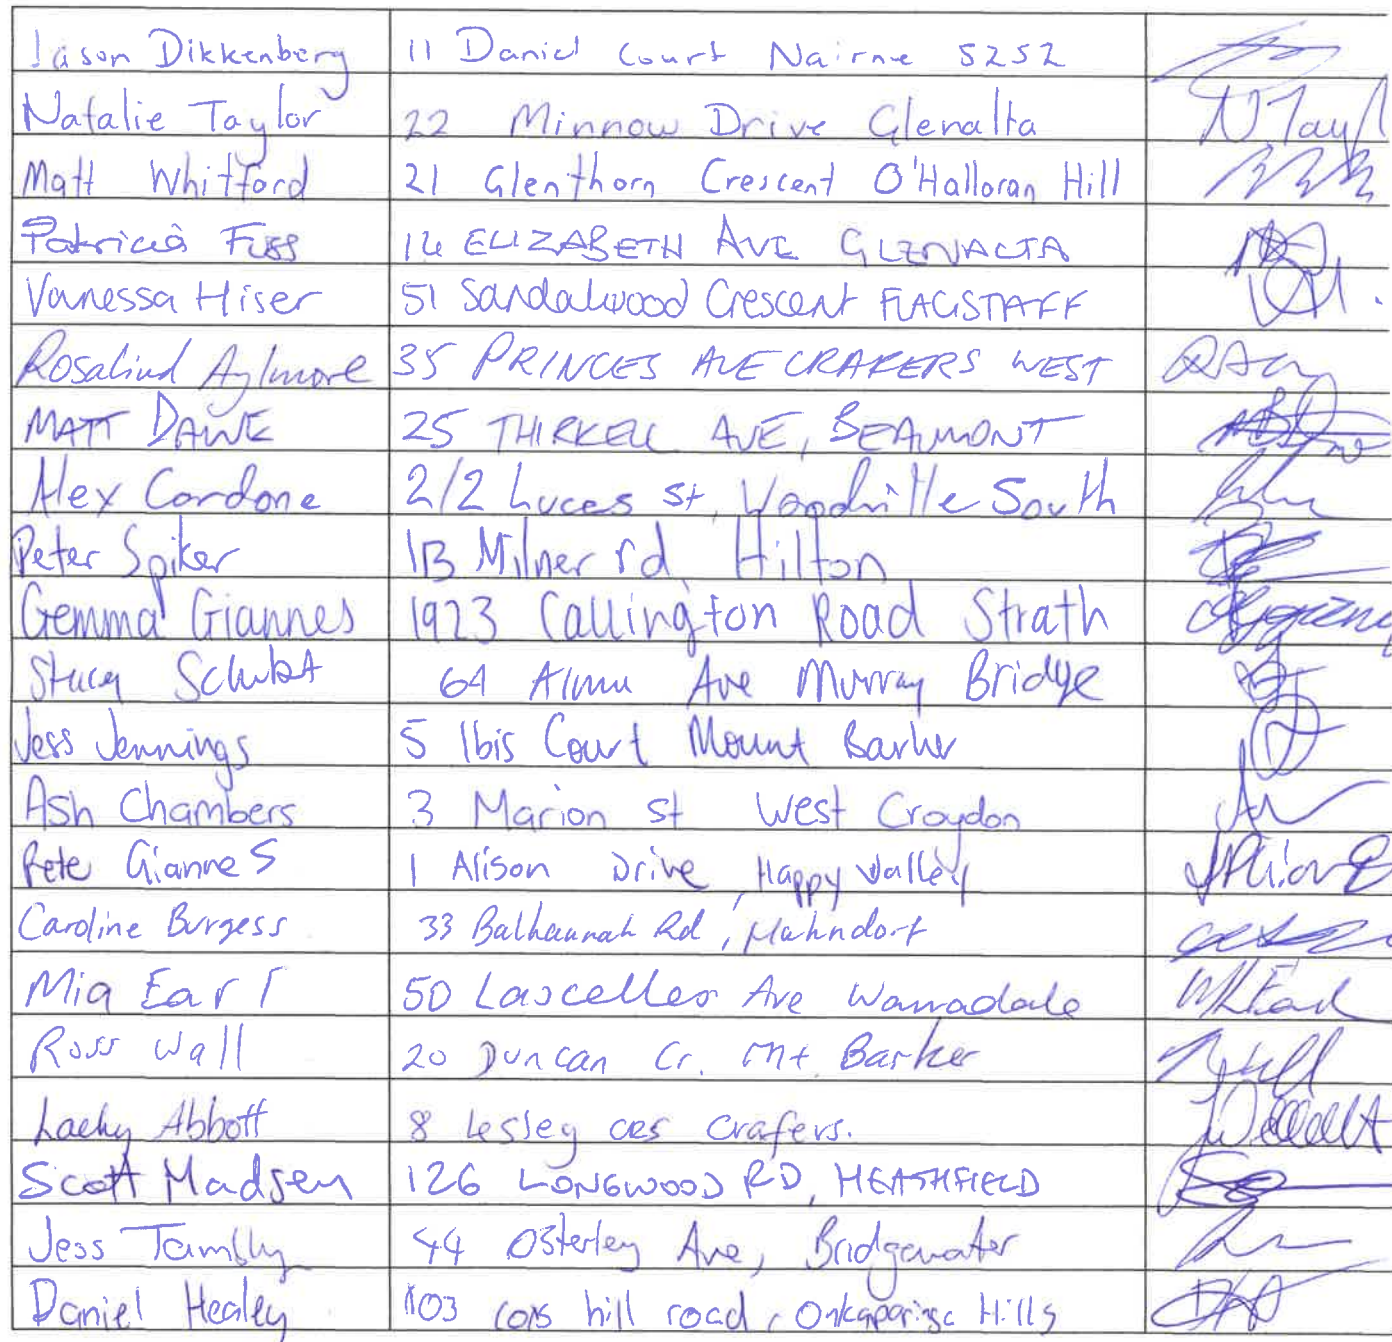 Jason Dikkenberg 11 Daniel Court Nairne 5252
Natalie Taylor 22 Minnow Drive Glenalta N Tayl
Matt Whitford 21 Glenthorn Crescent O'Halloran Hill
Patricia Fuss 14 ELIZABETH AVE GLENALTA
Vanessa Hiser 51 Sandalwood Crescent FLAGSTAFF
Rosalind Aylmore 35 PRINCES AVE CRAFERS WEST
MATT DAWE 25 THIRKELL AVE, BEAUMONT
Alex Cardone 2/2 Luces st, Woodville South
Peter Spiker 1B Milner rd Hilton
Gemma Giannes 1923 Callington Road Strath
Stacey Schubt 64 Ave Murray Bridge
Jess Jennings 5 Ibis Court Mount Barker
Ash Chambers 3 Marion st West Croydon
Pete GianneS 1 Alison Drive, Happy Valley
Caroline Burgess 33 Balhannah Rd, Hahndorf
Mia Earl 50 Lascelles Ave Warradale
Ross Wall 20 Duncan Cr. Mt. Barker
Lachy Abbott 8 Lesley cres crafers.
Scott Madsen 126 LONGWOOD RD, HEATHFIELD
Jess Tambly 44 Osterley Ave, Bridgewater
Daniel Healey 103 hill road, Onkaparinga Hills